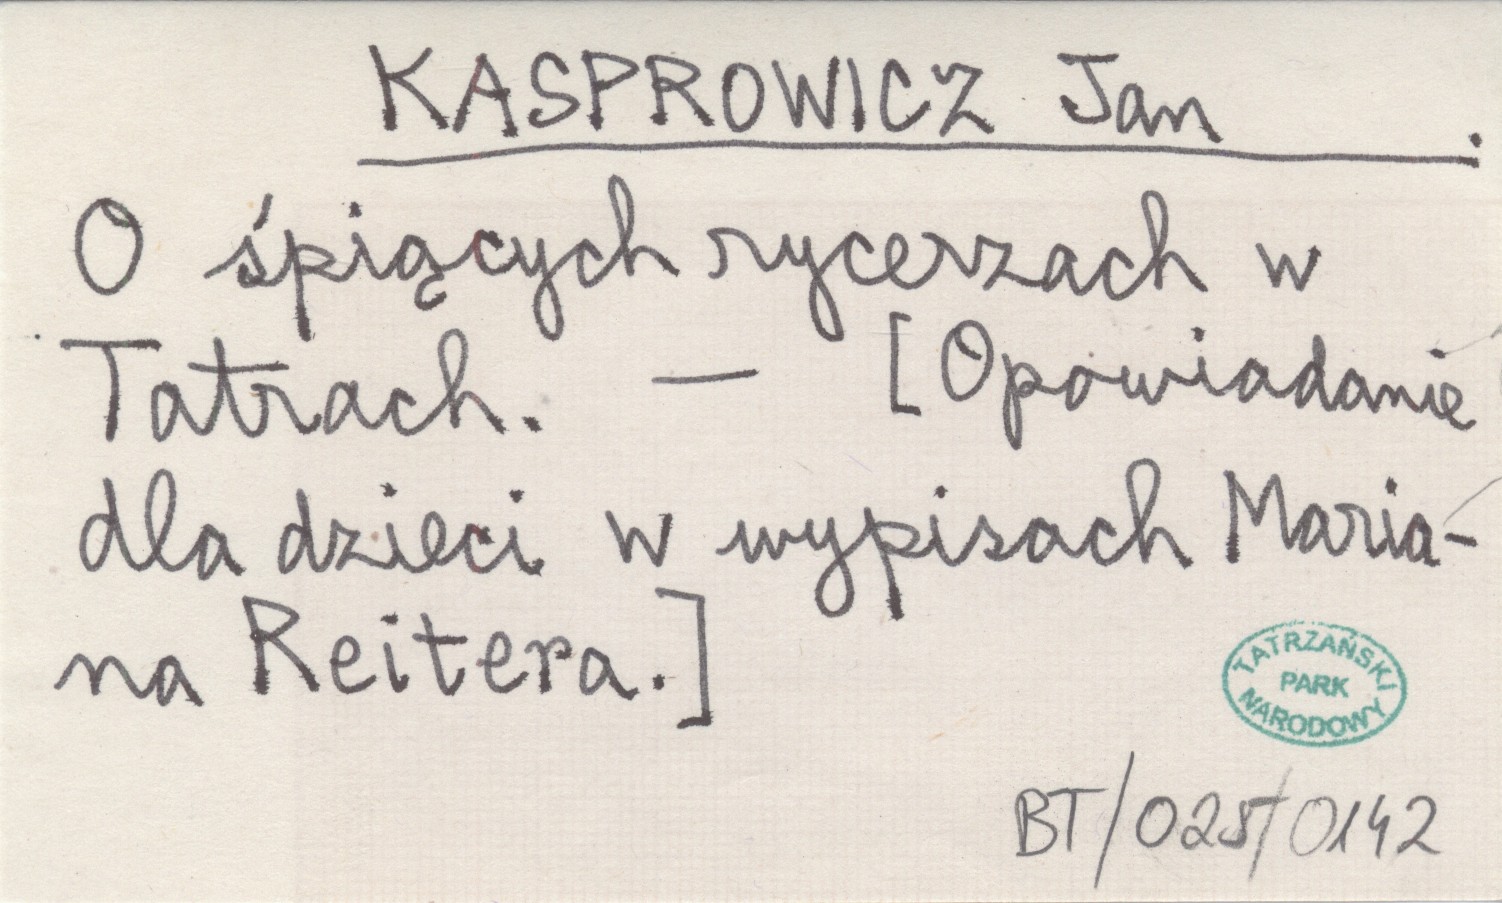 KASPROWICZ Jan.
O śpiących rycerzach w
Tatrach. — [Opowiadanie
dla dzieci w wypisach Maria-
na Reitera.]
TATRZAŃSKI
PARK
NARODOWY
BT/025/0142